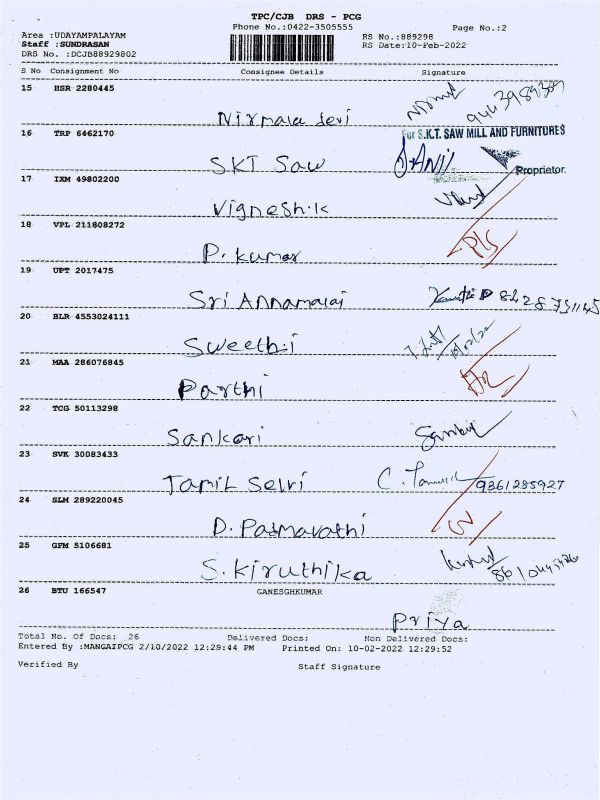 TPC/CJB DRS - PCG
Phone No.:0422-3505555 Page No.:2
Area :UDAYAMPALAYAM RS No.:889298
Staff :SUNDRASAN RS Date:10-Feb-2022
DRS No. :DCJB88929802
S No Consignment No Consignee Details Signature
15 HSR 2280445
Nirmala devi
16 TRP 6462170 For S.K.T. SAW MILL AND FURNITURES
SKT Saw Proprietor.
17 IXM 49802200
Vignesh.k
18 VPL 211808272
P. kumar
19 UPT 2017475
Sri Annamalai
20 BLR 4553024111
Sweethi
21 MAA 286076845
Parthi
22 TCG 50113298
Sankari
23 SVK 30083433
Tamil Selvi 9361285927
24 SLM 289220045
D. Padmavathi
25 GFM 5106681
S. Kiruthika
26 BTU 166547 GANESGHKUMAR
Priya
Total No. Of Docs: 26 Delivered Docs: Non Delivered Docs:
Entered By :MANGAIPCG 2/10/2022 12:29:44 PM Printed On: 10-02-2022 12:29:52
Verified By Staff Signature